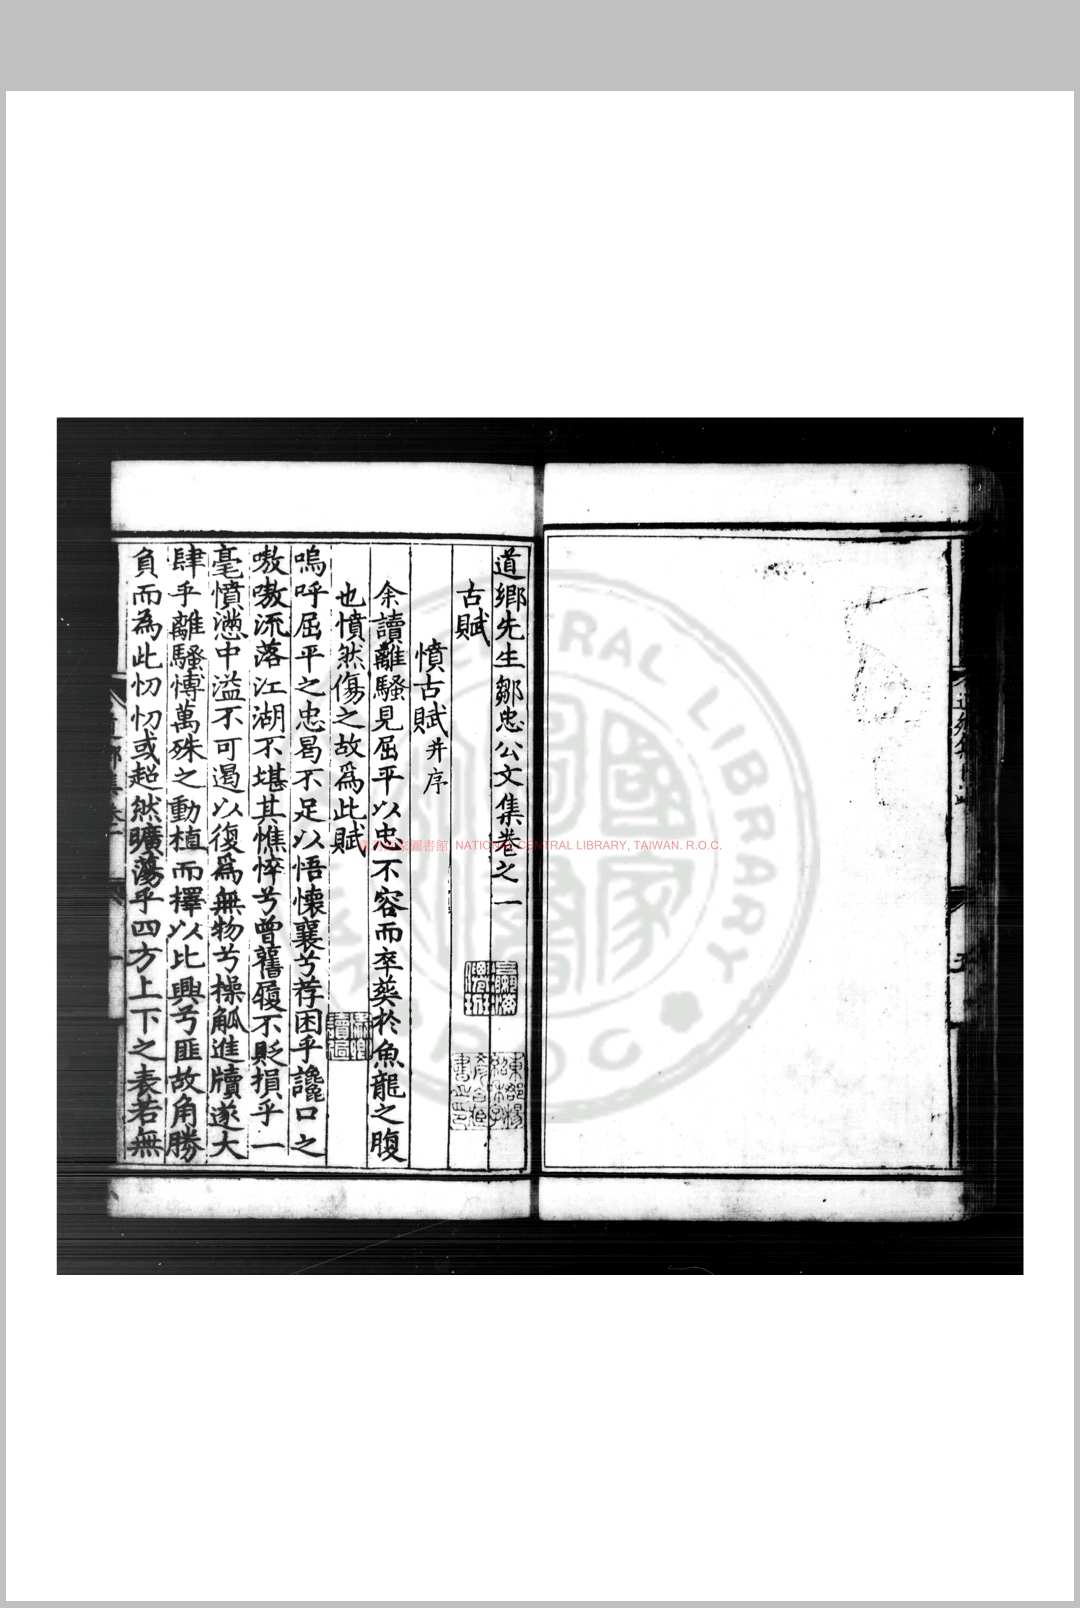 道鄉先生鄒忠公文集卷之一
古賦
憤古賦并序
余讀離騷見屈平以忠不容而卒葬於魚龍之腹
也憤然傷之故爲此賦
嗚呼屈平之忠曷不足以悟懷襄兮荐困乎讒口之
嗷嗷流落江湖不堪其憔悴兮曾舊履不貶損乎一
毫憤懣中溢不可遏以復爲無物兮操觚進牘遂大
肆乎離騷慱萬殊之動植而擇以比興兮匪故角勝
負而為此忉忉或超然曠蕩乎四方上下之表若無
NATIONAL CENTRAL LIBRARY, TAIWAN. R.O.C.